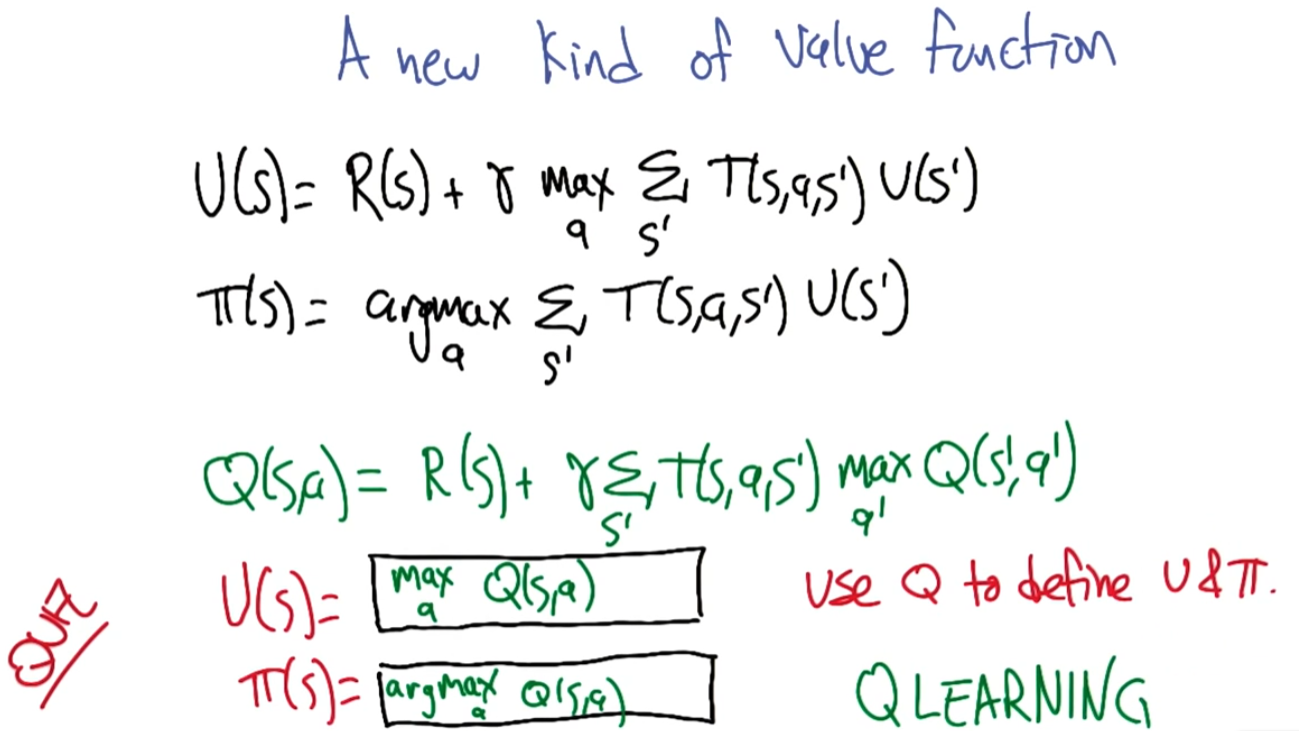 A new kind of value function
U(s)= R(s) + γ max_a Σ_s' T(s,a,s') U(s')
π(s)= argmax_a Σ_s' T(s,a,s') U(s')
Q(s,a)= R(s) + γ Σ_s' T(s,a,s') max_a' Q(s',a')
U(s)= max_a Q(s,a)
use Q to define U & π.
QUIZ
π(s)= argmax_a Q(s,a)
Q LEARNING